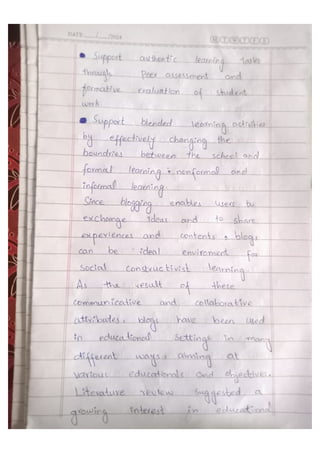 DATE: / /
M T W T F S S
• Support authentic learning tasks
through Peer assessment and
formative evaluation of student
work
• Support blended learning activities
by effectively changing the
boundries between the school and
formal learning, nonformal and
informal learning.
Since blogging enables users to
exchange ideas and to share
experiences and contents, blogs
can be ideal enviroment for
social constructivist learning.
As the result of these
communicative and collaborative
attributes, blogs have been used
in educational settings in many
different ways, aiming at
various educationals and objectives.
Literature review suggested a
growing interest in educational